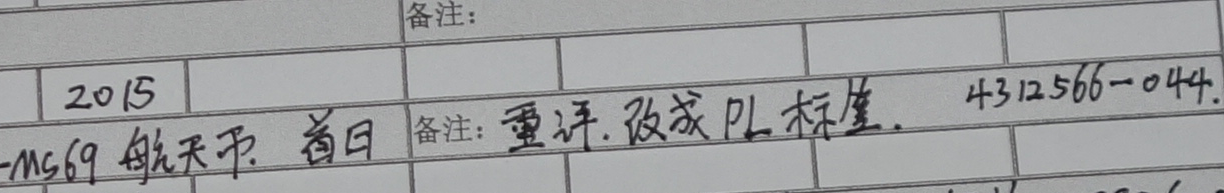 备注：
2015
-MS69 航天币. 首日 备注：重评. 改成PL标签. 4312566-044.